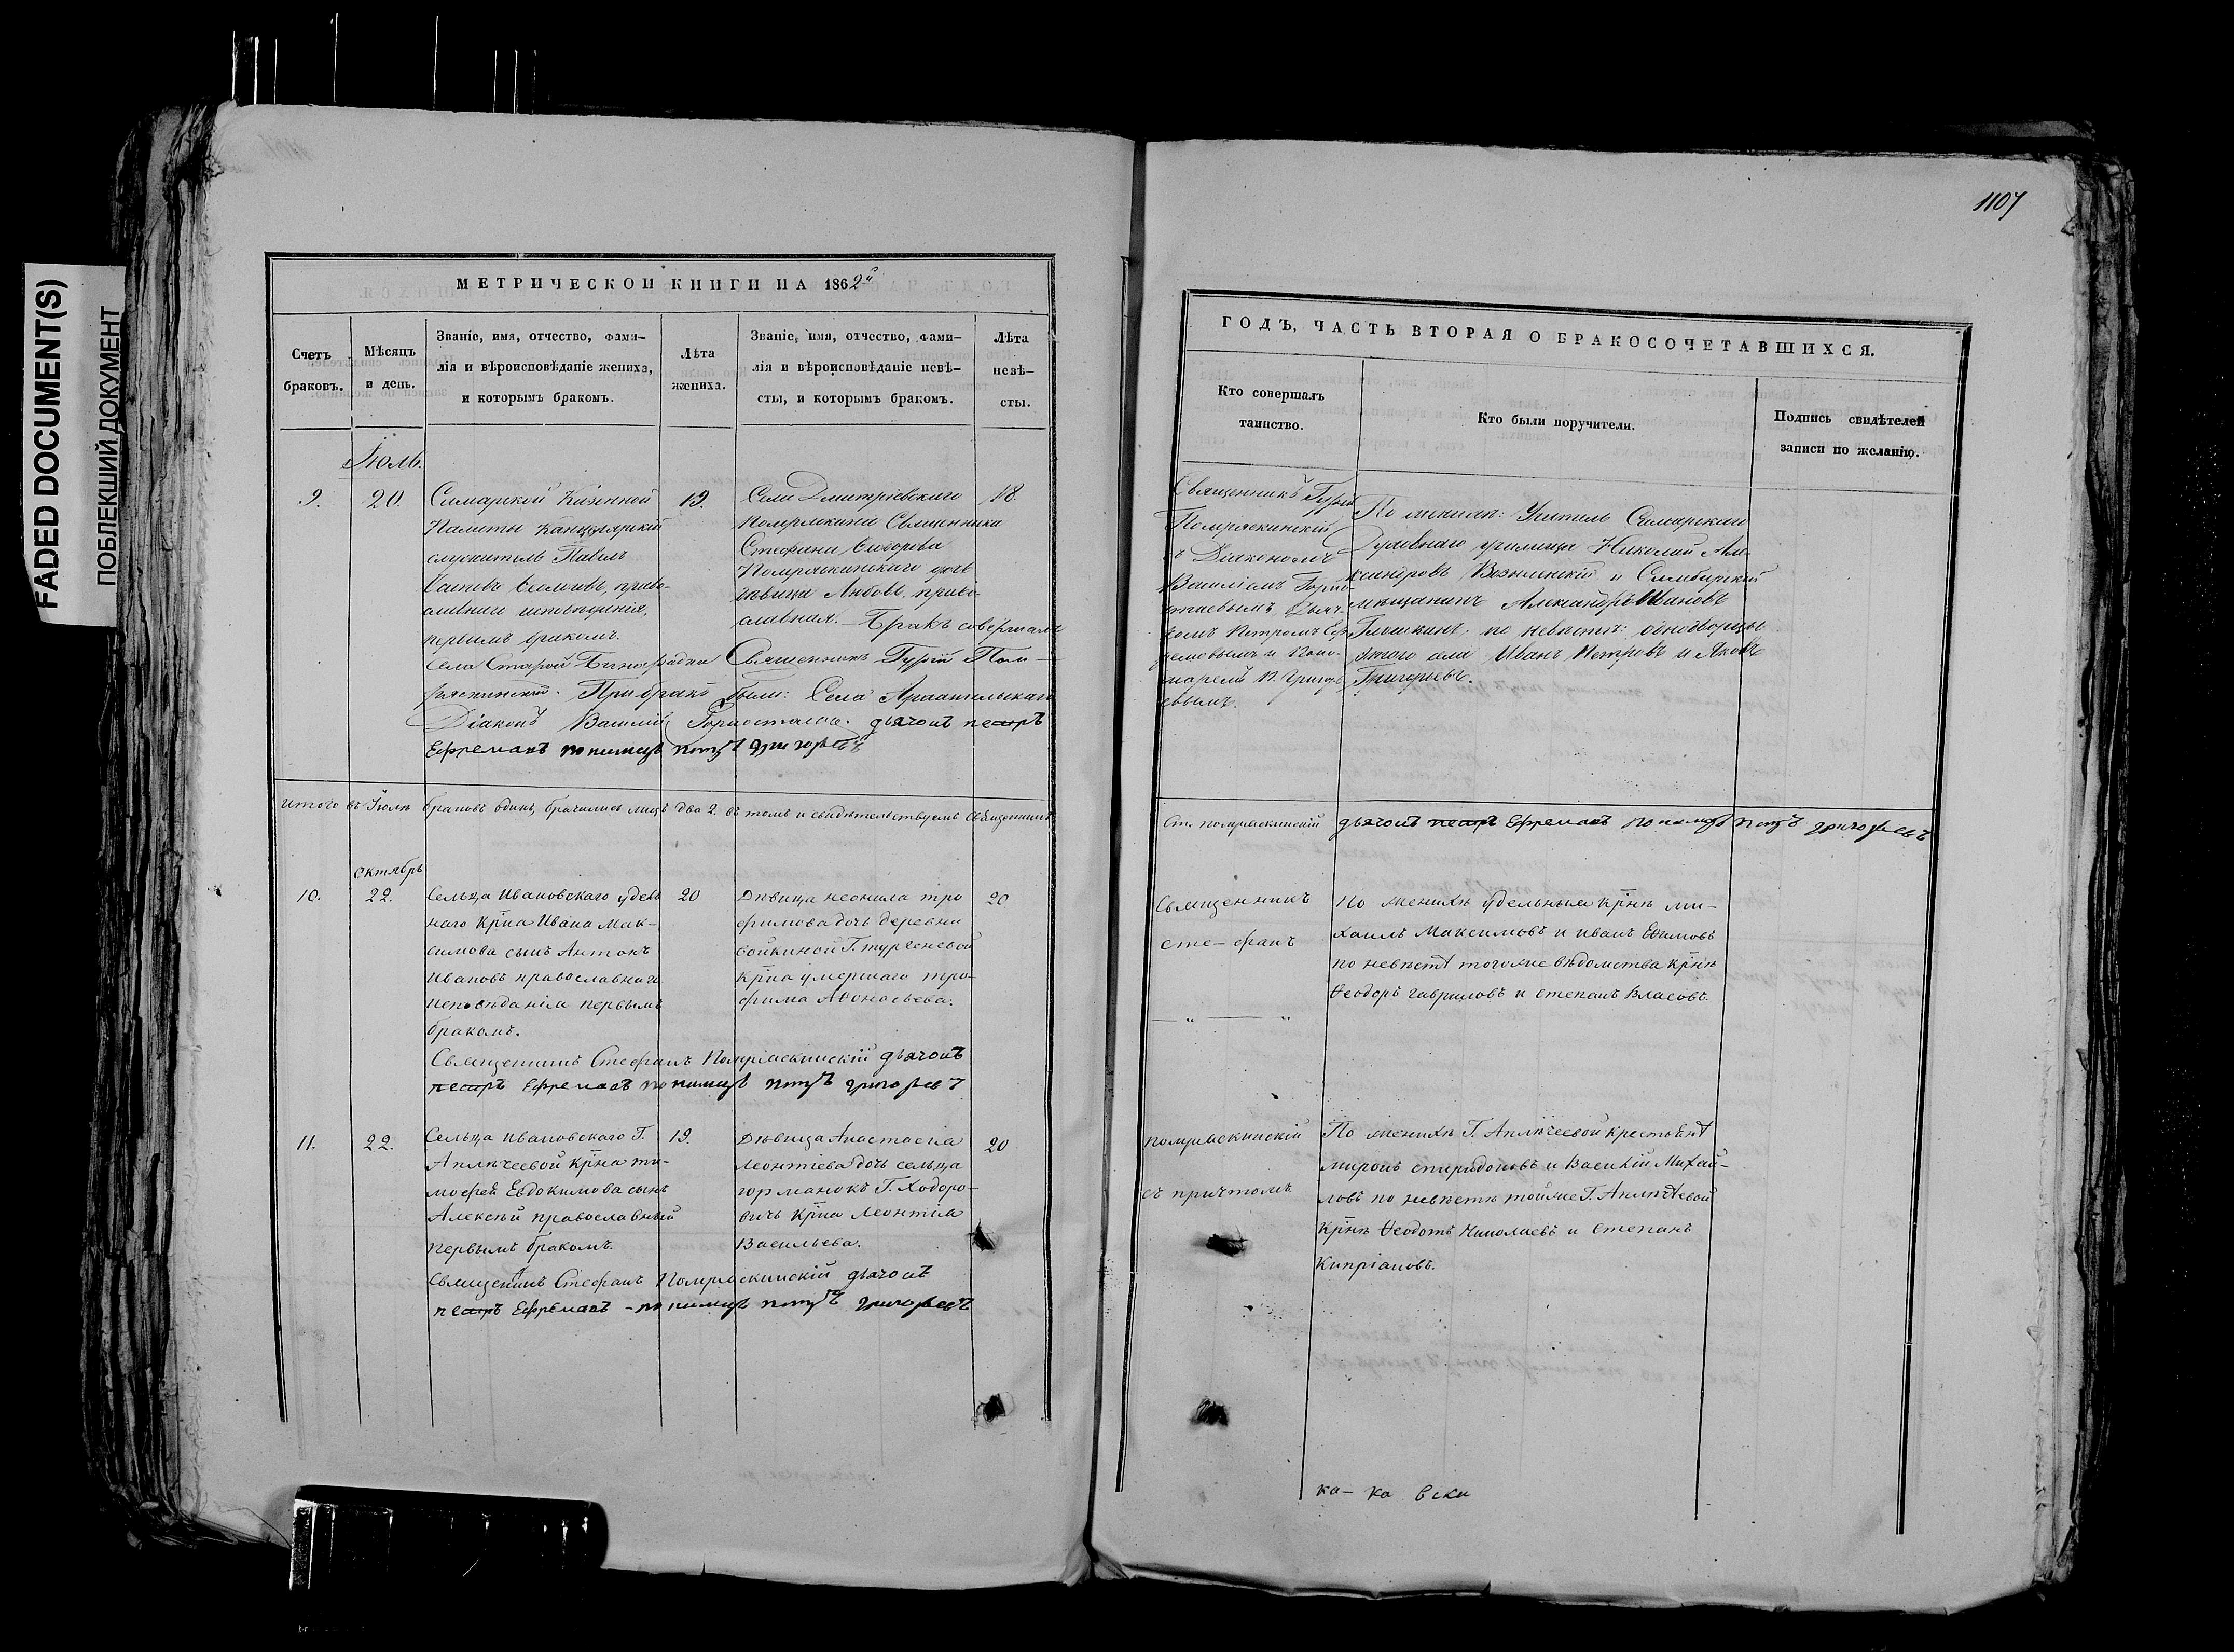 FADED DOCUMENT(S)
ПОБЛЕКШИЙ ДОКУМЕНТ
МЕТРИЧЕСКОЙ КНИГИ НА 1862й
Счетъ
браковъ.
Мѣсяцъ
и день.
Званіе, имя, отчество, фами-
лія и вѣроисповѣданіе жениха,
и которымъ бракомъ.
Лѣта
жениха.
Званіе, имя, отчество, фами-
лія и вѣроисповѣданіе невѣ-
сты, и которымъ бракомъ.
Лѣта
невѣ-
сты.
Іюль.
9.
20.
Самарской Казенной
Палаты Канцелярскій
служитель Павелъ
православнаго исповѣданія,
первымъ бракомъ.
19.
Села Дмитріевскаго
Помряскина Священника
Стефана Сидорова
Помряскинскаго дочь
дѣвица Любовь, право-
славная. – Бракъ совершалъ
18.
села Старой Бинарадки Священникъ Гурій Пом-
ряскинскій. При бракѣ были: Села Архангельскаго
Діаконъ Василій Горностаевъ. дьячокъ петръ
Ефремовъ пономарь петръ григорьевъ
итого въ Іюлѣ браковъ одинъ, брачились лицъ два 2. въ томъ и свидѣтельствуемъ Священникъ
Октябрь
10.
22.
Сельца Ивановскаго удель
наго Крна Ивана Мак-
симова сынъ Антонъ
Ивановъ православнаго
исповѣданія первымъ
бракомъ.
20
Дѣвица неонила тро
фимова дочь деревни
войкиной Г. тургеневой
Крна умершаго тро-
фима Афонасьева.
20
Священникъ Стефанъ Помряскинскій дьячокъ
петръ Ефремовъ пономарь петръ григорьевъ
11.
22.
Сельца Ивановскаго Г.
Аплечеевой Крна ти-
мофея Евдокимова сынъ
Алексѣй православный
первымъ бракомъ.
19.
Дѣвица Анастасія
Леонтіева дочь сельца
горманокъ Г. Ходоро-
вичь Крна Леонтія
Васильева.
20
Священникъ Стефанъ Помряскинскій дьячокъ
петръ Ефремовъ – пономарь петръ григорьевъ
1107
ГОДЪ, ЧАСТЬ ВТОРАЯ О БРАКОСОЧЕТАВШИХСЯ.
Кто совершалъ
таинство.
Кто были поручители.
Подпись свидѣтелей
записи по желанію.
Священникъ Гурій
Помряскинскій
съ Діакономъ
Василіемъ Горно-
стаевымъ, Дьяч-
комъ Петромъ Еф
ремовымъ и Поно-
маремъ П. Григорь
евымъ.
По женихѣ: Учитель Самарскаго
Духовнаго училища Николай Але-
ксандровъ Вознесенскій и Симбирскій
мѣщанинъ Александръ Ивановъ
по невѣстѣ: однодворцы
этого села Иванъ Петровъ и Яковъ
Григорьевъ.
Ст. помряскинскій дьячокъ петръ Ефремовъ пономарь петръ григорьевъ
Священникъ
сте-фанъ
По женихѣ удельныя крнѣ ми-
хаилъ Максимовъ и иванъ Ефимовъ
по невѣстѣ тогоже вѣдомства крнѣ
Ѳеодоръ гавриловъ и степанъ Власовъ.
помряскинскій
съ причтомъ
По женихѣ Г. Аплечеевой крестьянѣ
миронъ спиридоновъ и Василій Михай-
ловъ по невѣстѣ тойже Г. Аплечеевой
Крнѣ Ѳеодотъ Николаевъ и Степанъ
Кипріановъ.